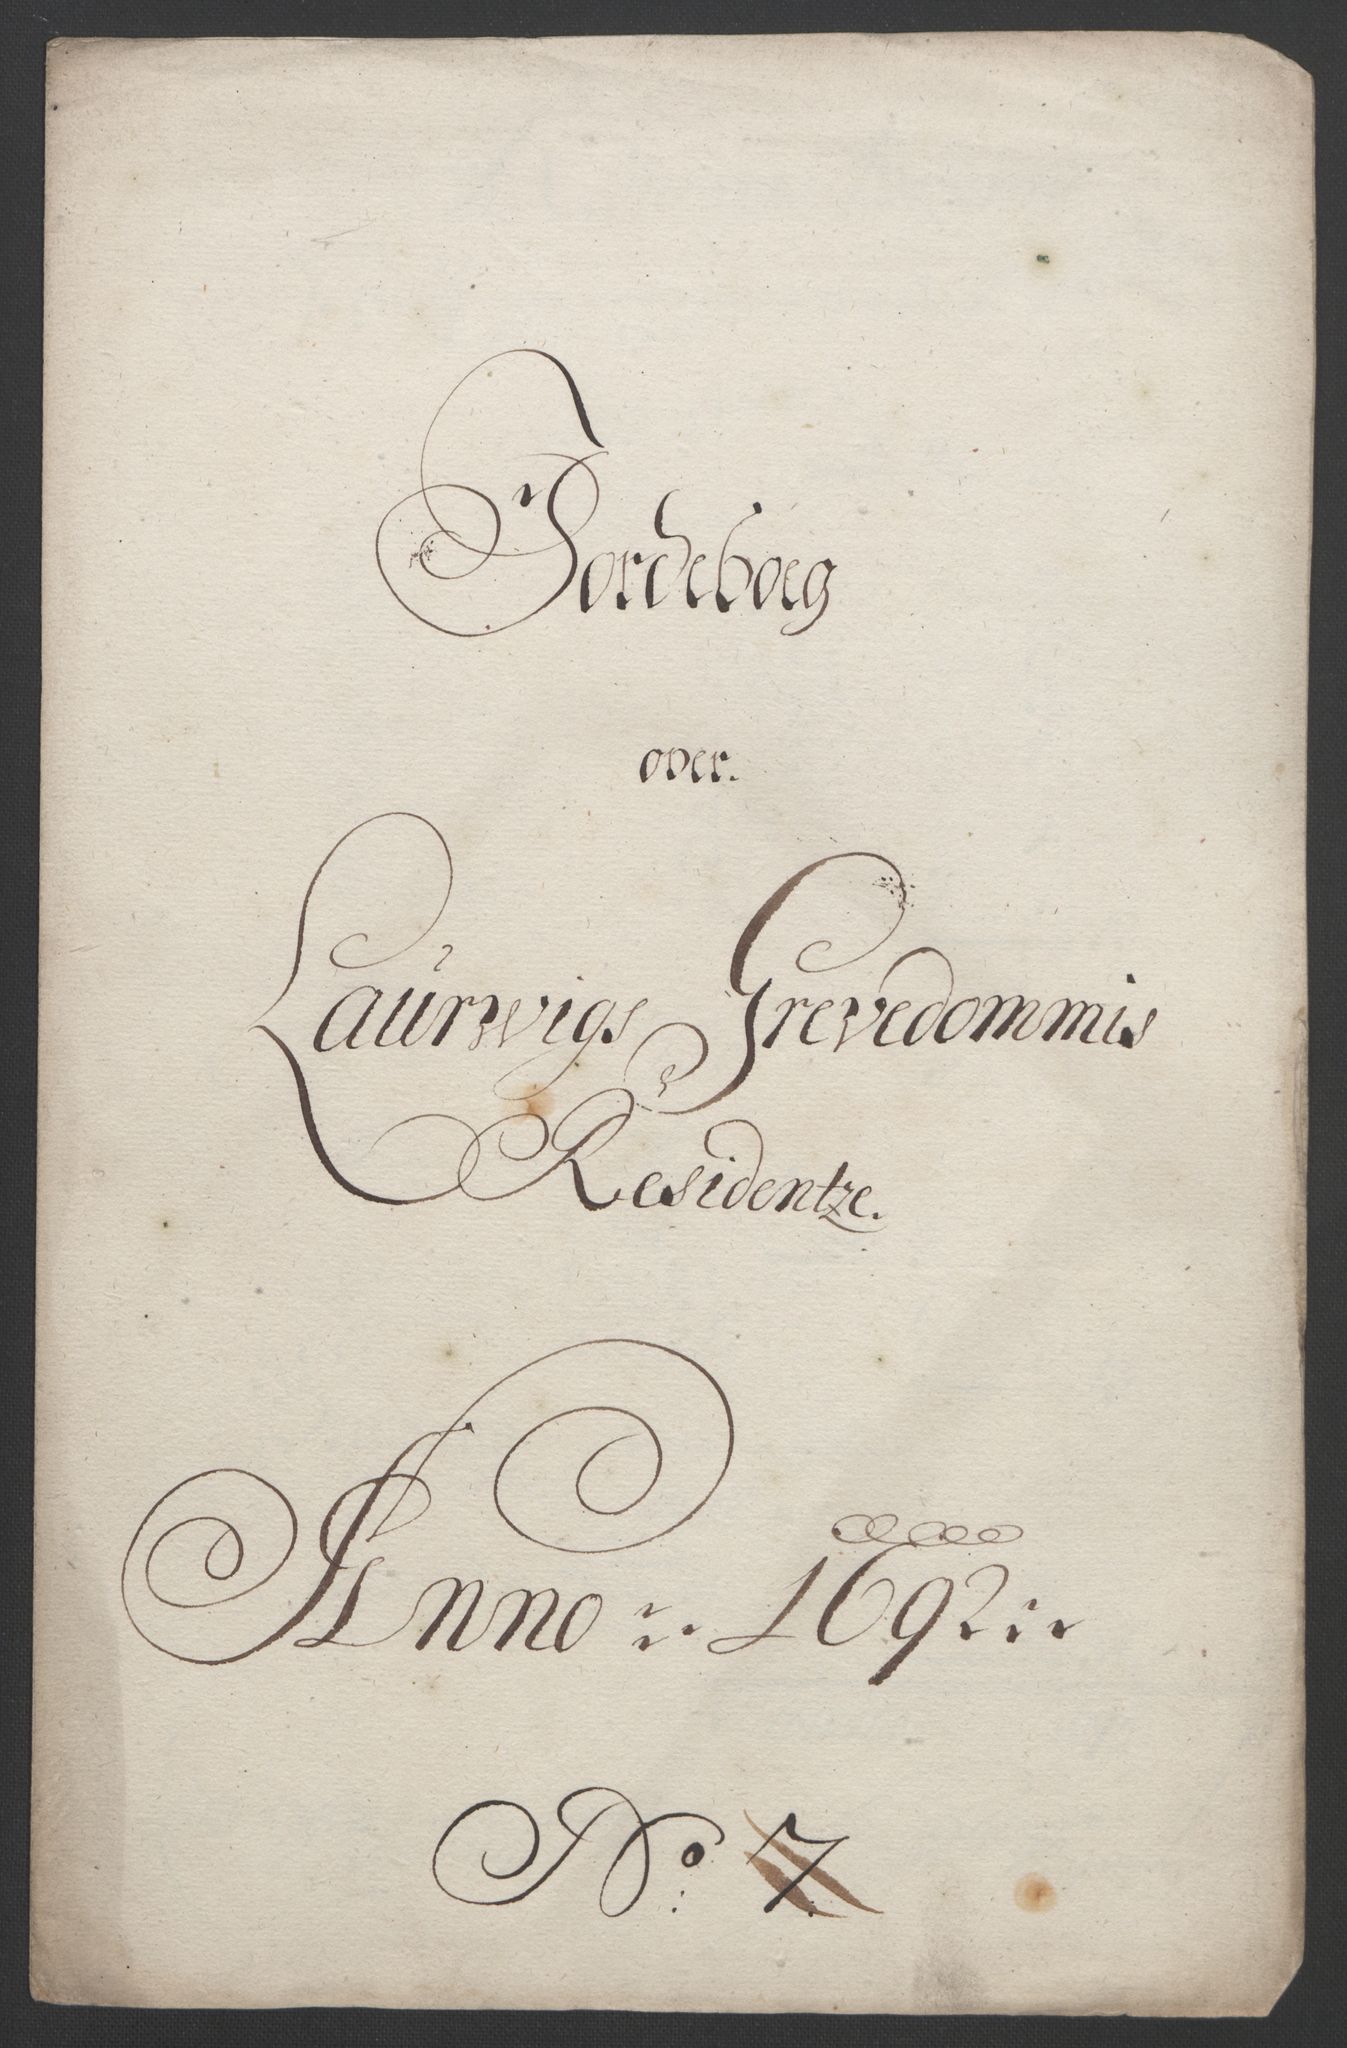 Jordeboeg
over.
Laürwigs Grevedommis
Residentze.
Anno 1692
No: 7.